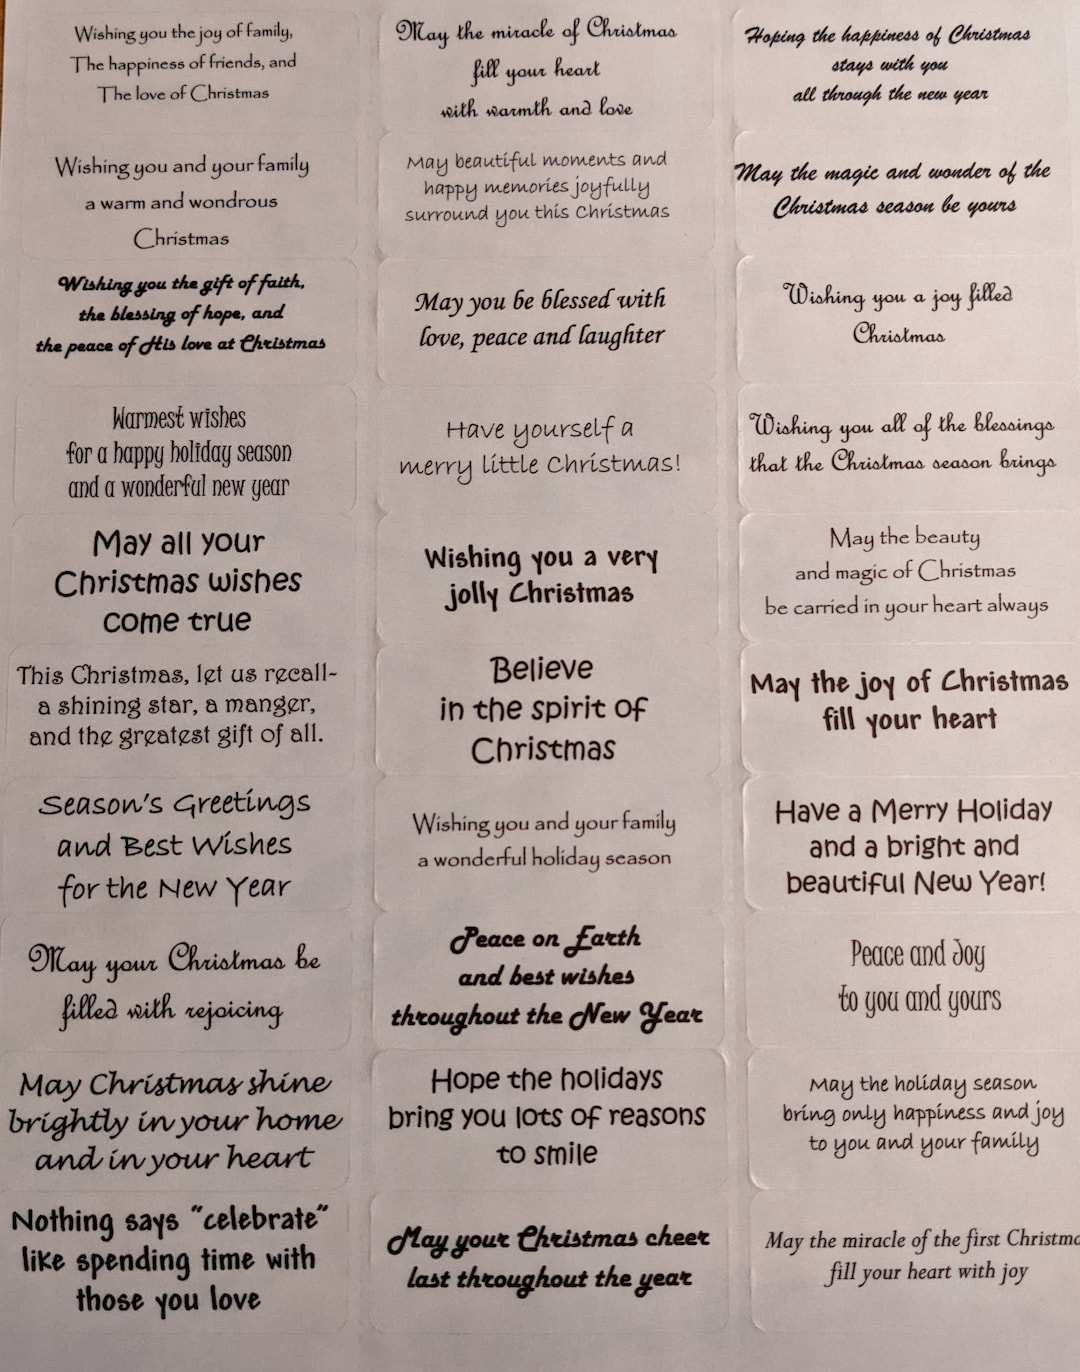 Wishing you the joy of family,
The happiness of friends, and
The love of Christmas
May the miracle of Christmas
fill your heart
with warmth and love
Hoping the happiness of Christmas
stays with you
all through the new year
Wishing you and your family
a warm and wondrous
Christmas
May beautiful moments and
happy memories joyfully
surround you this Christmas
May the magic and wonder of the
Christmas season be yours
Wishing you the gift of faith,
the blessing of hope, and
the peace of His love at Christmas
May you be blessed with
love, peace and laughter
Wishing you a joy filled
Christmas
Warmest wishes
for a happy holiday season
and a wonderful new year
Have yourself a
merry little Christmas!
Wishing you all of the blessings
that the Christmas season brings
May all your
Christmas wishes
come true
Wishing you a very
jolly Christmas
May the beauty
and magic of Christmas
be carried in your heart always
This Christmas, let us recall-
a shining star, a manger,
and the greatest gift of all.
Believe
in the spirit of
Christmas
May the joy of Christmas
fill your heart
Season's Greetings
and Best Wishes
for the New Year
Wishing you and your family
a wonderful holiday season
Have a Merry Holiday
and a bright and
beautiful New Year!
May your Christmas be
filled with rejoicing
Peace on Earth
and best wishes
throughout the New Year
Peace and Joy
to you and yours
May Christmas shine
brightly in your home
and in your heart
Hope the holidays
bring you lots of reasons
to smile
May the holiday season
bring only happiness and joy
to you and your family
Nothing says "celebrate"
like spending time with
those you love
May your Christmas cheer
last throughout the year
May the miracle of the first Christma
fill your heart with joy